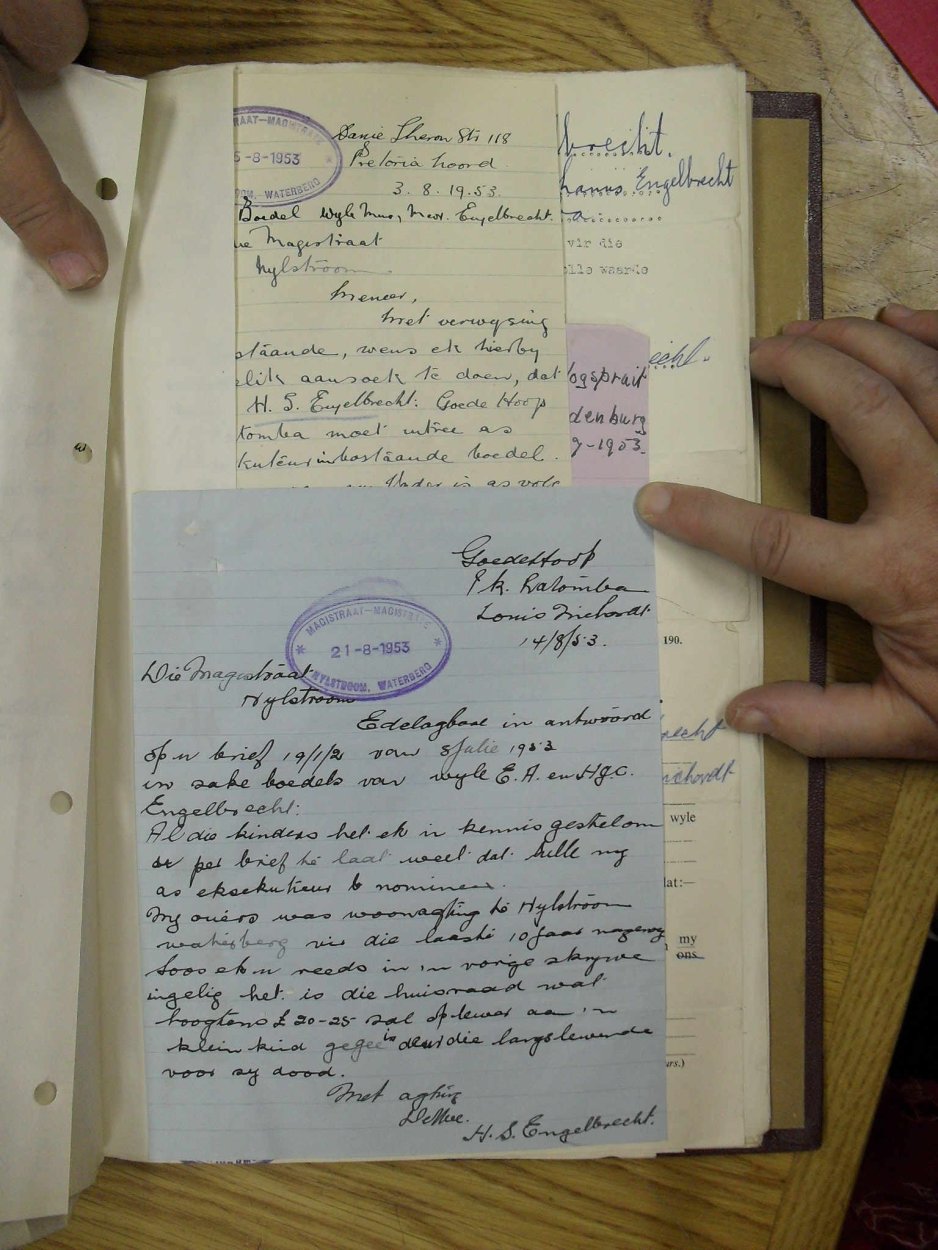 STRAAT-MAGISTRATE
5-8-1953
OM, WATERBERG
Danie Theron Str 118
Pretoria Noord
3.8.1953.
Boedel Wyle Mnr, Mev. Engelbrecht.
ie Magistraat
Nylstroom
Meneer,
Met verwysing
staande, wens ek hierby
elik aansoek te doen, dat
H. S. Engelbrecht. Goede Hoop
tomba moet intree as
kuteur in bostaande boedel.
is as volg
brecht.
hanis Engelbrecht
a.
vir die
olle waarde
echt.
ogspruit
denburg
9-1953.
190.
recht
ichardt
wyle
dat:—
my
ons
rs.)
Goede Hoop
P k. Ratomba
Louis Trichardt
14/8/53.
MAGISTRAAT-MAGISTRATE
21-8-1953
NYLSTROOM, WATERBERG
Die Magistraat
Nylstroom
Edelagbare in antwoord
op u brief 19/1/2 van 8 Julie 1953
in sake boedels van wyle E. A. en H.J.C.
Engelbrecht:
Al die kinders het ek in kennis gestel om
per brief te laat weet dat hulle my
as eksekuteur te nomineer.
My ouers was woonagtig te Nylstroom
waterberg vir die laaste 10 jaar
Soos ek u reeds in 'n vorige skrywe
ingelig het is die huisraad wat
hoogtens £20-25 sal oplewer aan 'n
klein kind gegee is deur die langslewende
voor sy dood.
Met agting
Die Uwe.
H. S. Engelbrecht.